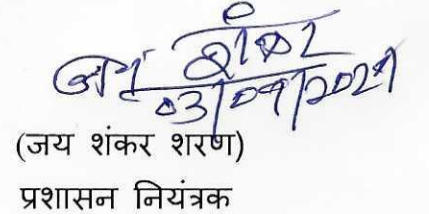 जय शंकर
03/09/2021
(जय शंकर शरण)
प्रशासन नियंत्रक